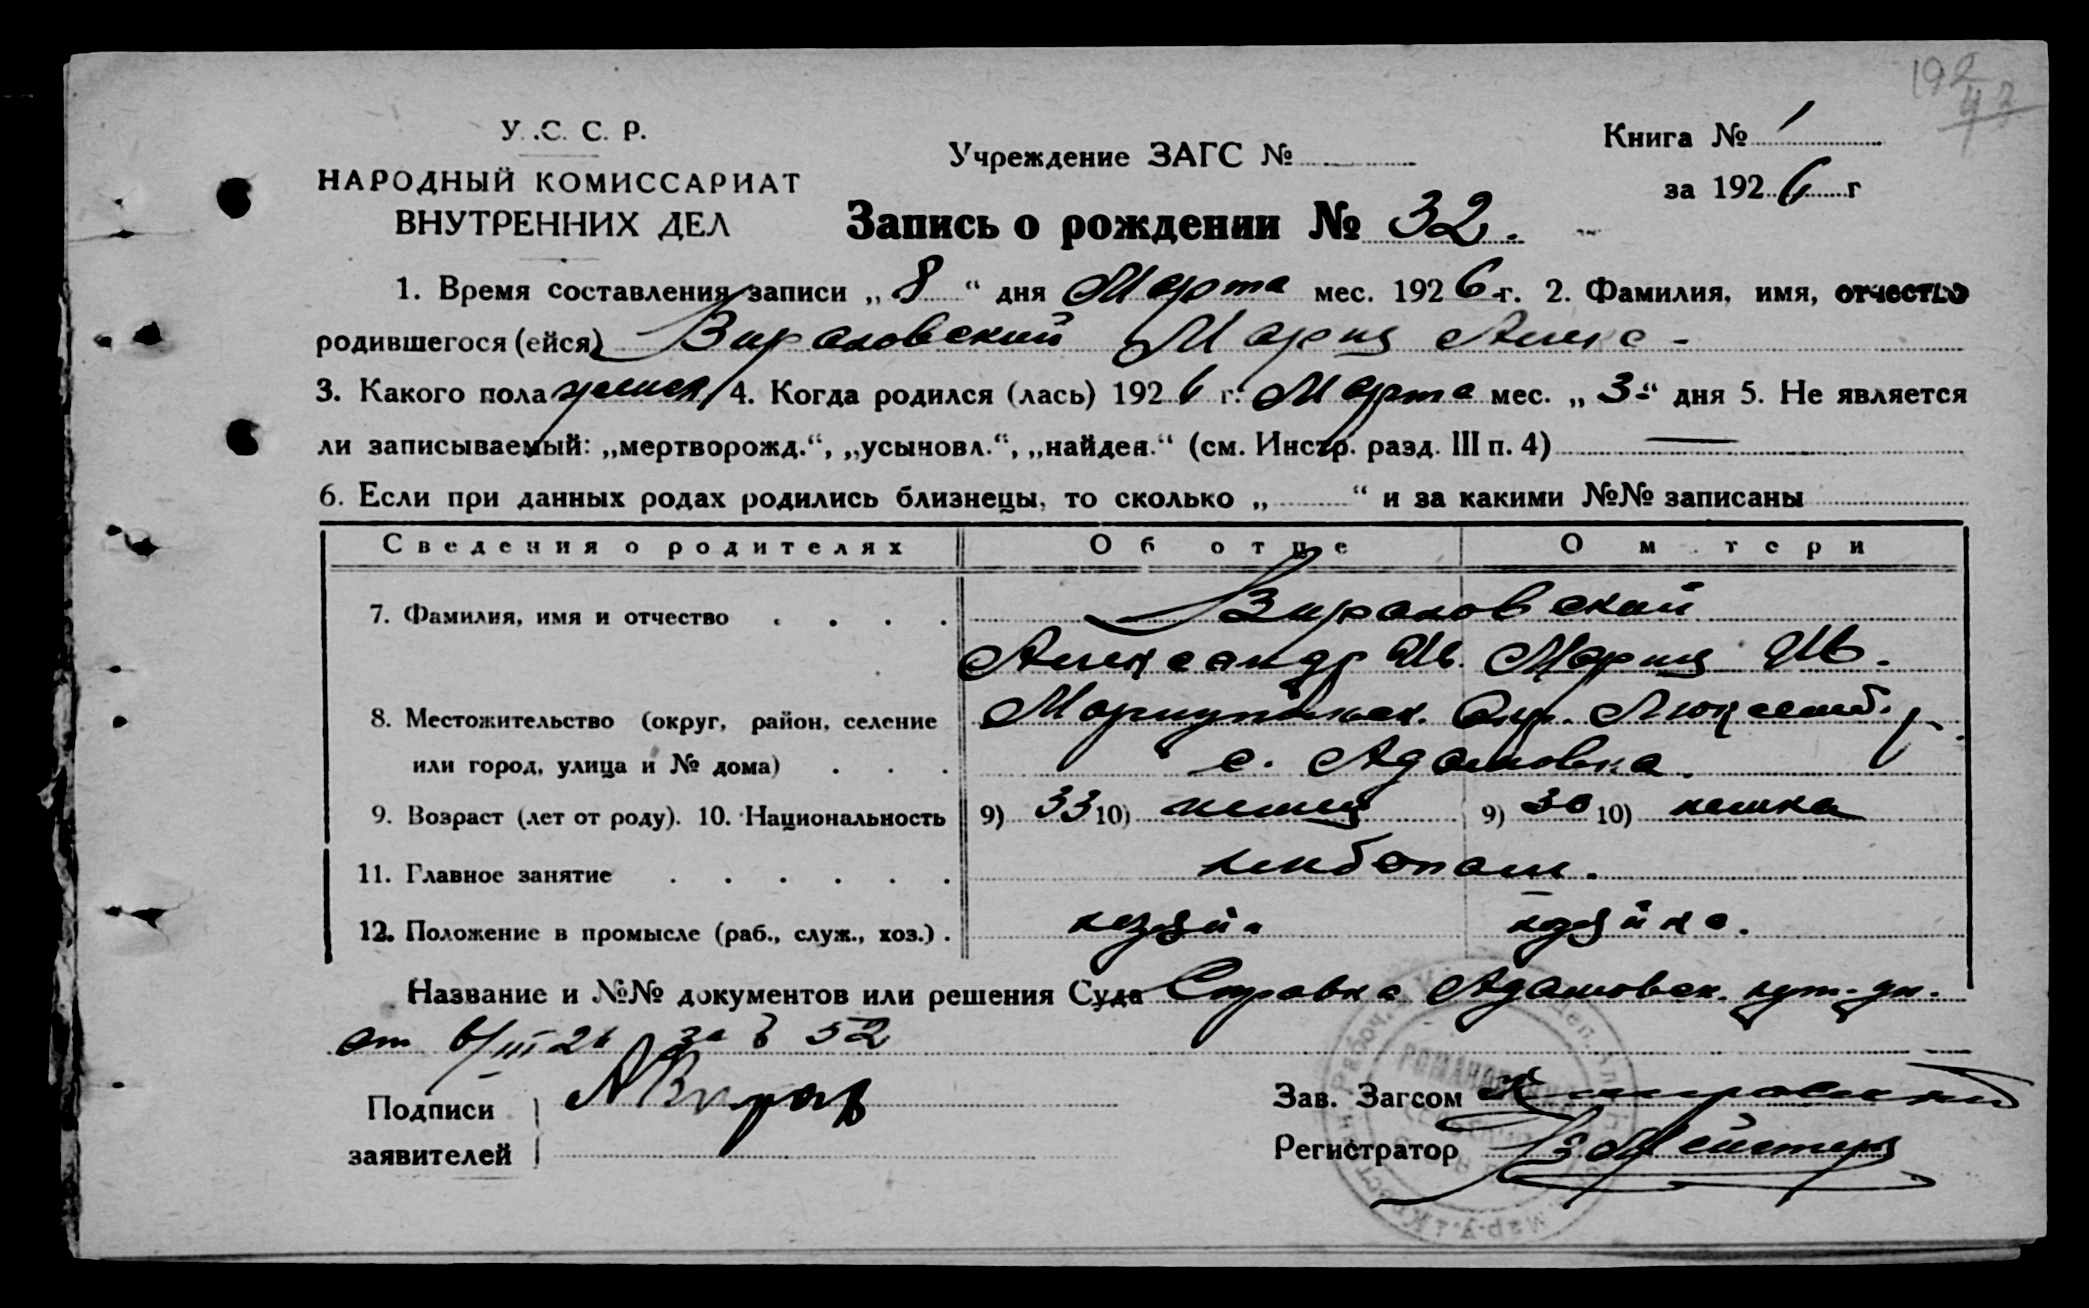 192
43
У. С. С. Р.
НАРОДНЫЙ КОМИССАРИАТ
ВНУТРЕННИХ ДЕЛ
Учреждение ЗАГС №
Книга № 1
за 1926 г
Запись о рождении № 32.
1. Время составления записи „8“ дня Марта мес. 1926 г. 2. Фамилия, имя, отчество
родившегося (ейся) Вираховский Мария Алекс-
3. Какого пола женск 4. Когда родился (лась) 1926 г. Марта мес. „3“ дня 5. Не является
ли записываемый: „мертворожд.“, „усыновл.“, „найден.“ (см. Инстр. разд. III п. 4) —
6. Если при данных родах родились близнецы, то сколько „ “ и за какими №№ записаны
Сведения о родителях Об отце О матери
7. Фамилия, имя и отчество . . . . Вираховский
Александр Ив. Мария Ив.
8. Местожительство (округ, район, селение Мариупольск. Окр. Люксемб. р.
или город, улица и № дома) . . . с. Адамовка.
9. Возраст (лет от роду). 10. Национальность 9) 33 10) немец 9) 30 10) немка
11. Главное занятие . . . . . . хлебопаш.
12. Положение в промысле (раб., служ., хоз.) . хозяин хозяйка.
Название и №№ документов или решения Суда Справка Адамовск.
от 6/III 26 за № 52
Подписи
заявителей
Зав. Загсом
Регистратор